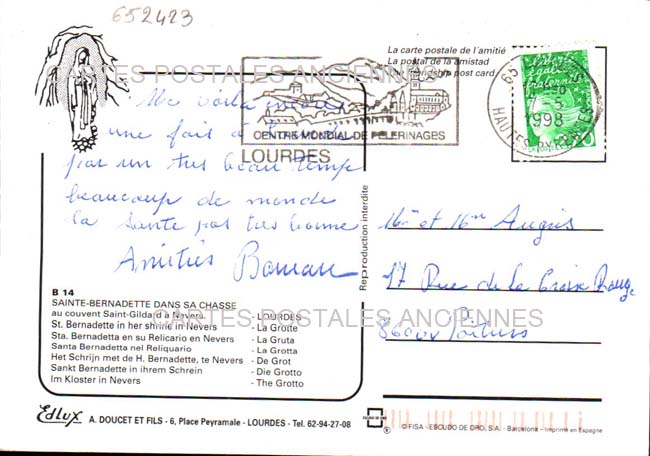 652423
La carte postale de l'amitié
La postal de la amistad
friendship post card
CARTES POSTALES ANCIENNES
CENTRE MONDIAL DE PELERINAGES
LOURDES
65
HAUTES-PYRENEES
5
1998
Liberté
égalité
fraternité
Me voilà encore
une fois à
par un tres beau temps
beaucoup de monde
la sante pas tres bonne
Amitiés
Reproduction interdite
Mr et Mme
17 Rue de la Croix Rouge
86000 Poitiers
B 14
SAINTE-BERNADETTE DANS SA CHASSE
au couvent Saint-Gildard à Nevers - LOURDES
St. Bernadette in her shrine in Nevers - La Grotte
Sta. Bernadetta en su Relicario en Nevers - La Gruta
Santa Bernadetta nel Reliquario - La Grotta
Het Schrijn met de H. Bernadette, te Nevers - De Grot
Sankt Bernadette in ihrem Schrein - Die Grotto
Im Kloster in Nevers - The Grotto
CARTES POSTALES ANCIENNES
Edlux A. DOUCET ET FILS - 6, Place Peyramale - LOURDES - Tel. 62-94-27-08
ESCUDO DE ORO
® © FISA - ESCUDO DE ORO, S.A. - Barcelona - Imprimé en Espagne